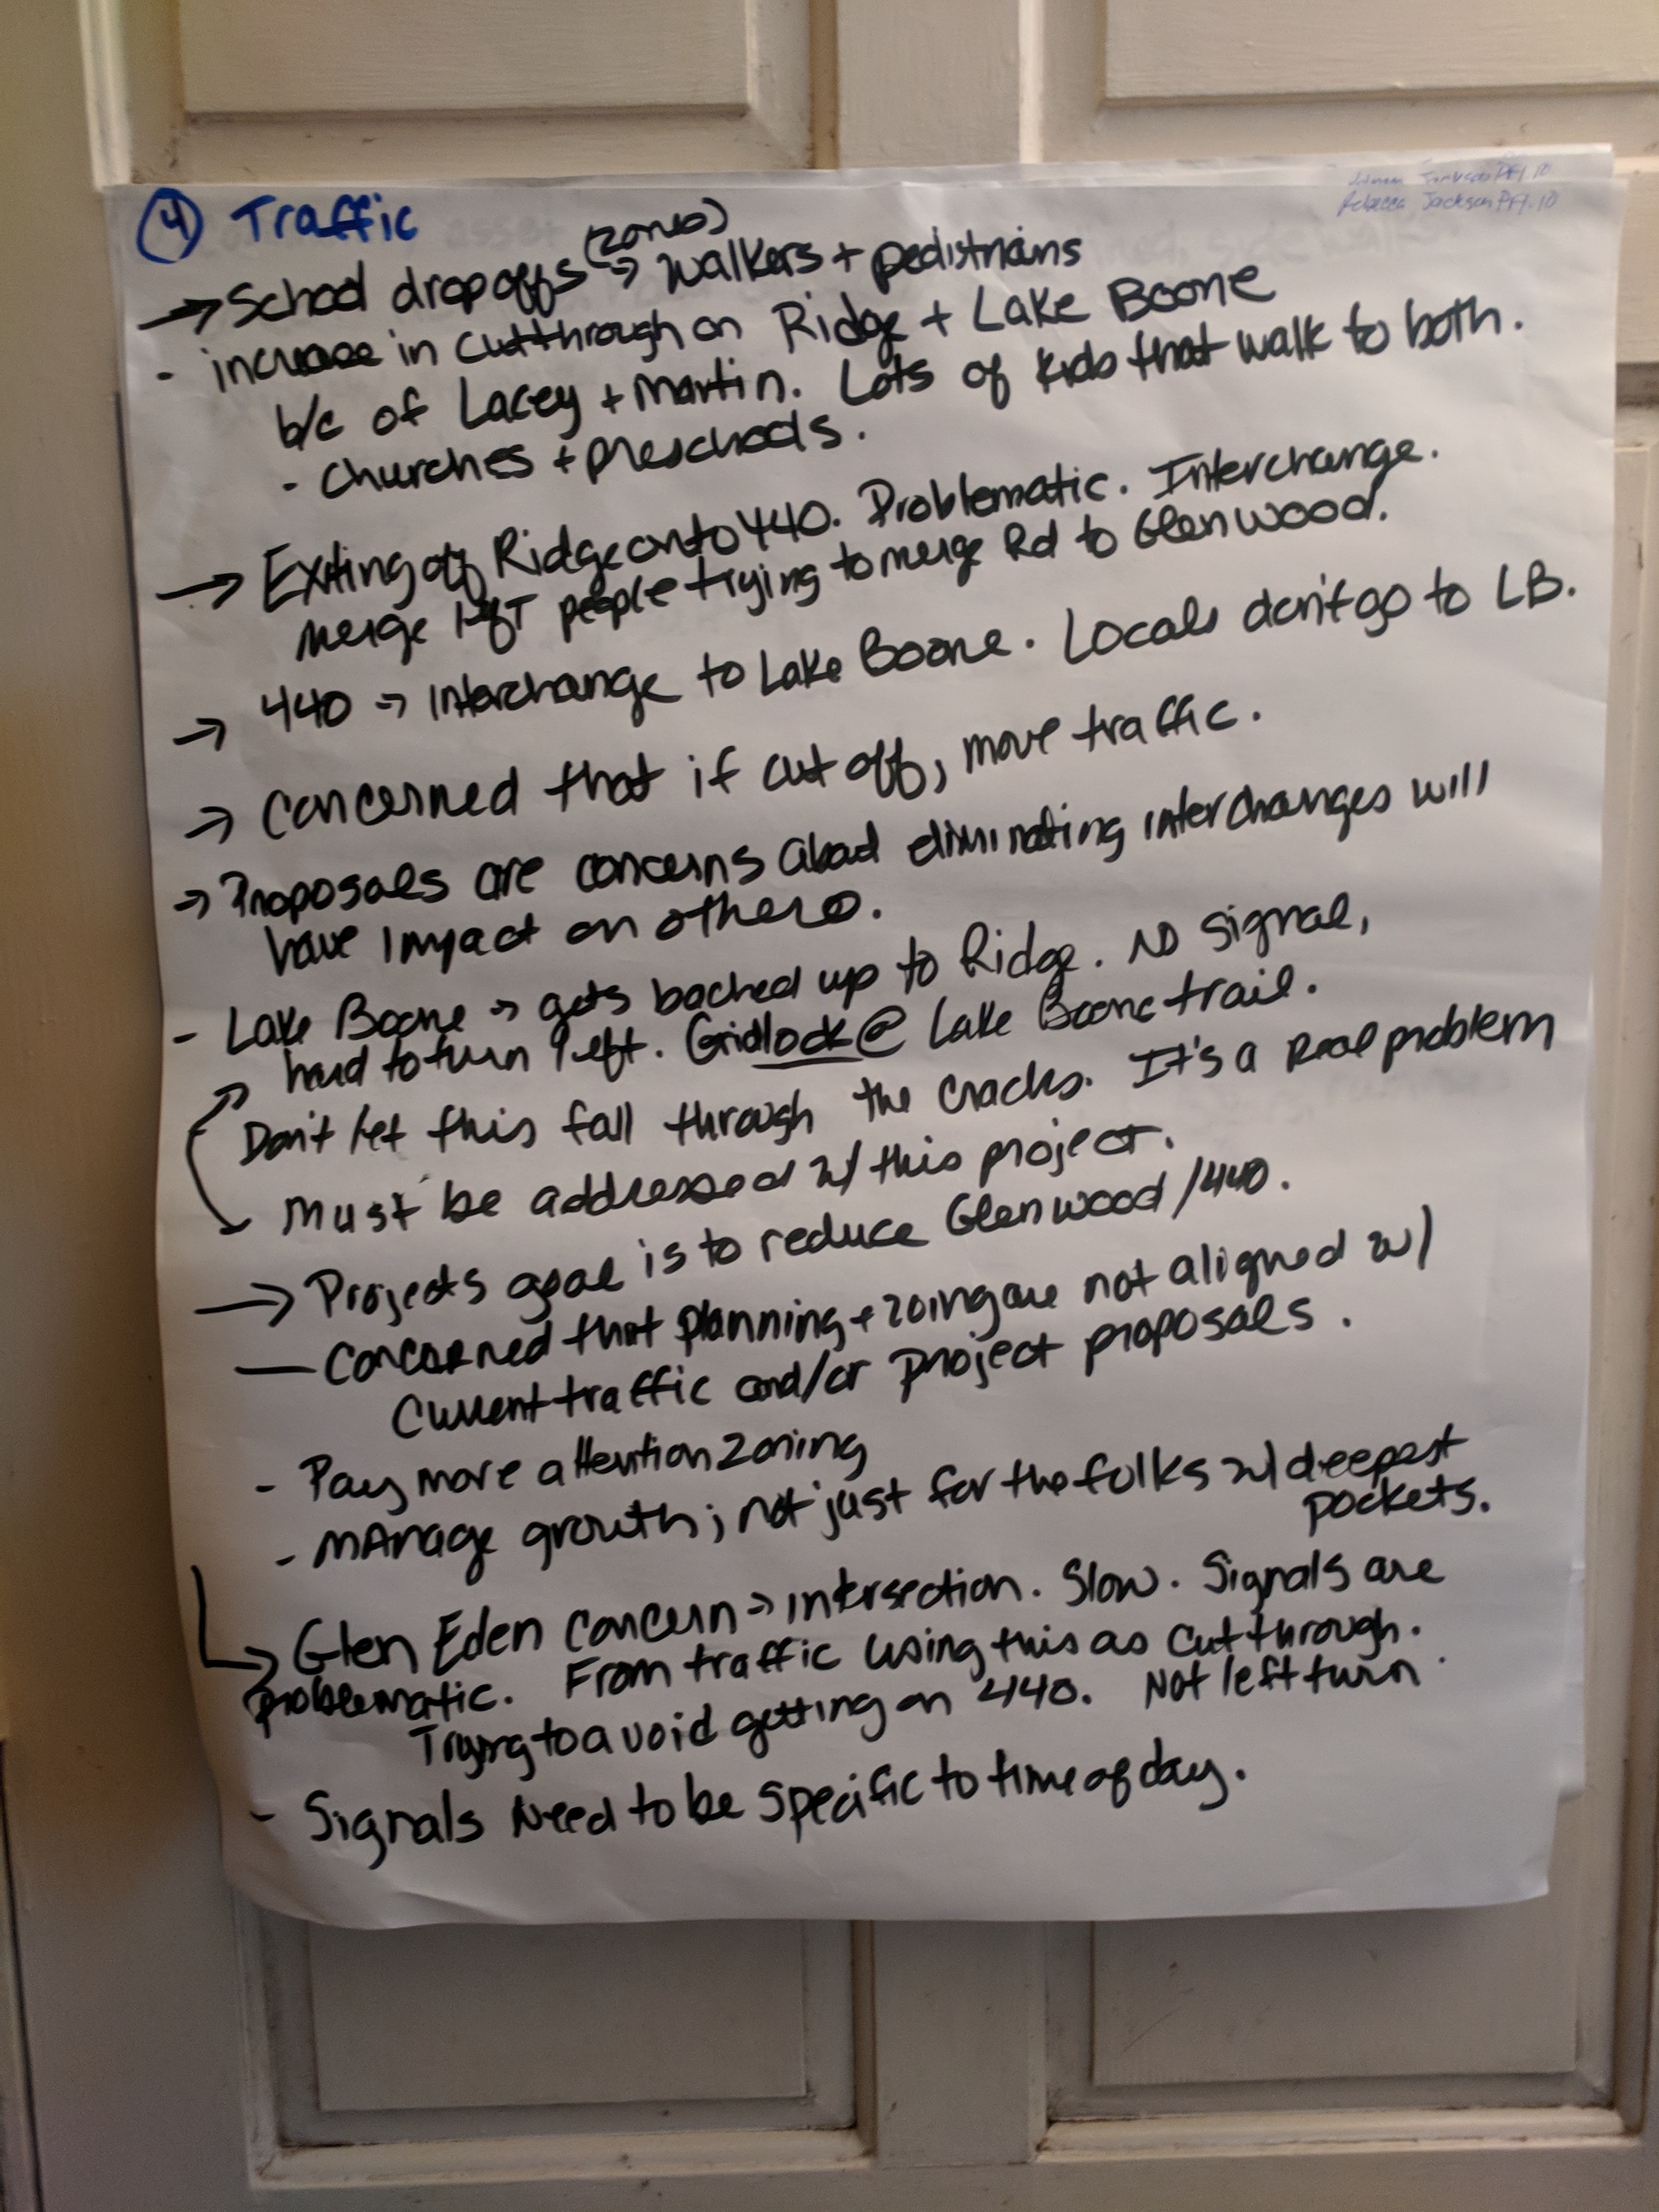 4 Traffic
(zones)
→ School dropoffs → walkers + pedistriains
- increase in cutthrough on Ridge + Lake Boone
b/c of Lacey + Martin. Lots of kids that walk to both.
- Churches + preschools.
→ Exiting off Ridge onto 440. Problematic. Interchange.
merge left people trying to merge Rd to Glenwood.
→ 440 → interchange to Lake Boone. Locals don't go to LB.
→ Concerned that if cut off, move traffic.
→ Proposals are concerns abad eliminating interchanges will
have impact on others.
- Lake Boone → gets backed up to Ridge. No signal,
hard to turn left. Gridlock @ Lake Boone trail.
→ Don't let this fall through the cracks. It's a Real problem
Must be addressed w/ this project.
→ Projects goal is to reduce Glenwood/440.
— Concerned that planning + zoing are not aligned w/
Current traffic and/or project proposals.
- Pay more attention zoning
- Manage growth; not just for the folks w/ deepest
pockets.
→ Glen Eden Concern → intersection. Slow. Signals are
problematic. From traffic using this as cut through.
Trying to avoid getting on 440. Not left turn
- Signals Need to be specific to time of day.